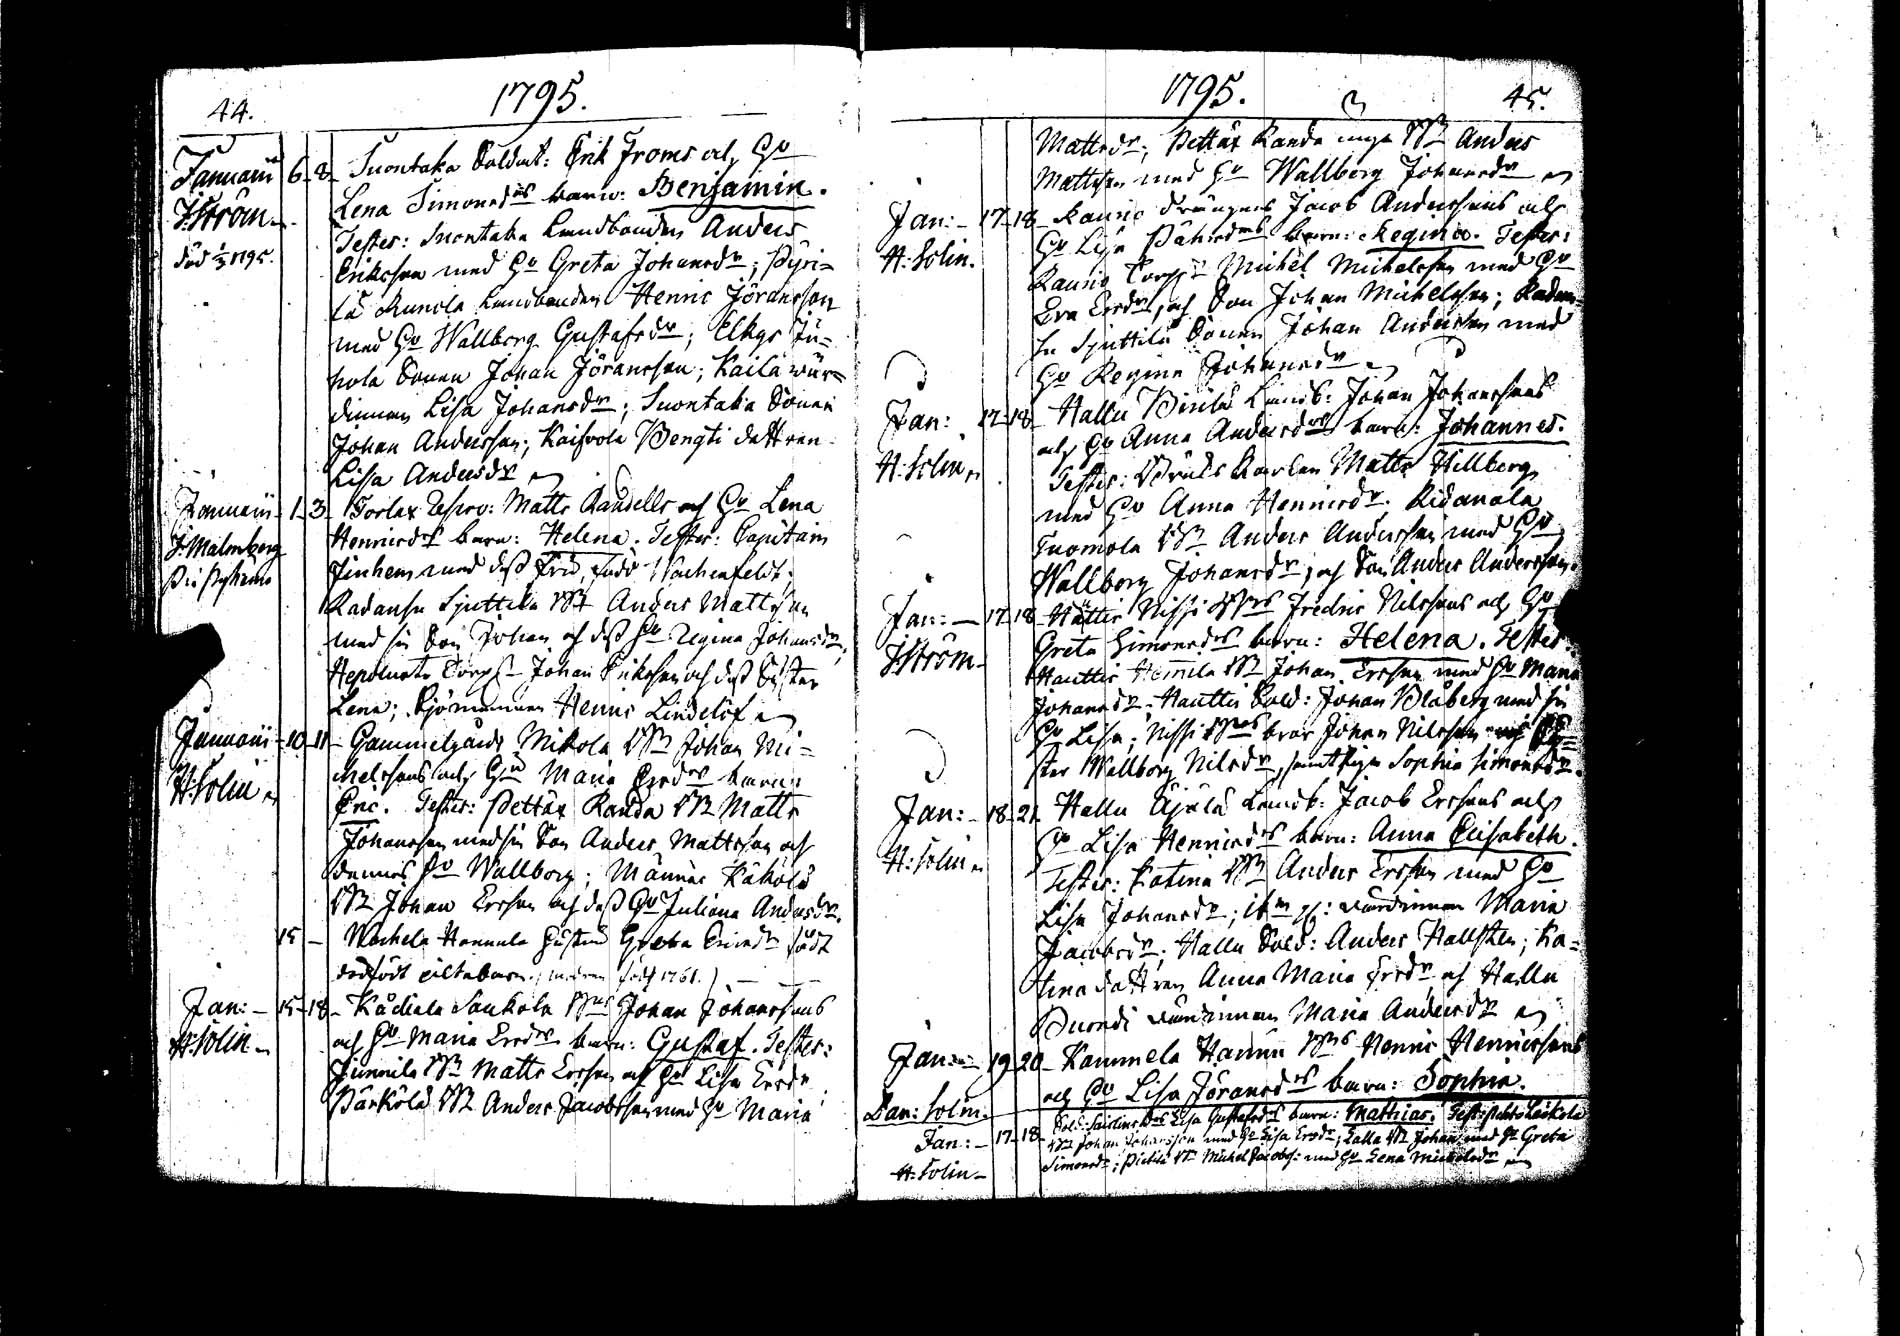 44.
1795.
Januarii 6-8- Suontaka Soldat: Erik Froms och Hu
Lena Simonsdrs barn: Benjamin.
J:Ström
död 1795.
Testes: Suontaka Landbonden Anders
Eriksson med Hu Greta Johansdr; Pyri=
lä Landbonden Henric Jöransson
med Hu Wallborg Gustafsdr; Elkyr Ju=
hola Sonen Johan Jöransson; Kaila wär=
dinnan Lisa Johansdr; Suontaka Sonen
Johan Andersson; Kaisvola Bengti dottren
Lisa Andersdr
Januarii - 1-3- Torlax Matts Randells och Hu Lena
J:Malmberg
Henricsdrs barn: Helena. Testes: Capitain
Jinhem med dess Fru, född Wachenfeldt;
Radansu Sjuttila Anders Mattsson
med sin Son Johan och dess Hu Regina Johansdr;
Johan Eriksson och dess Syster
Lena; Henric Lindelöf
Januarii - 10-11- Gammelgårds Mikola Johan Mi=
chelssons och Hu Maria Ersdrs barn:
H:Solin
Eric. Testes: Pettäx Randa Matts
Johansson med sin Son Anders Mattsson och
dennes Hu Wallborg; Männäs Kåkola
Johan Ersson och dess Hu Juliana Andersdr.
15 - Wachela Hannula Greta Ericsdr födt
dödfödt oächta barn. (modren född 1761.)
Jan: - 15-18- Kådiala Saukola Johan Johanssons
och Hu Maria Ersdrs barn: Gustaf. Testes:
H:Solin
Junnila Matts Ersson och Hu Lisa Ersdr
Pärkölä Anders Jacobsson med Hu Maria
1795.
45.
Mattsdr; Pettäx Randa unge Anders
Mattsson med Hu Wallborg Johansdr
Jan: - 17-18- Rauno drängens Jacob Anderssons och
Hu Lisa barn: Regina. Testes:
H:Solin.
Rauno Michel Michelsson med Hu
Eva Ersdr, och Son Johan Michelsson; Radan=
su Sjuttila Sonen Johan Andersson med
Hu Regina Johansdr
Jan: 17-18- Hallu Landb: Johan Johanssons
och Hu Anna Andersdrs barn: Johannes.
H:Solin
Testes: Matts Hillberg
med Hu Anna Henricsdr; Kidanala
Tuomola Anders Andersson med Hu
Wallborg Johansdr, och Son Anders Andersson.
Jan: - 17-18- Hauttis Nissi Fredric Nilssons och Hu
J:Ström
Greta Simonsdrs barn: Helena. Testes:
Hauttis Heinila Johan Ersson med Hu Maria
Johansdr. Hauttis Sold: Johan Blåberg med sin
Hu Lisa; Nissi bror Johan Nilsson och Sy=
ster Wallborg Nilsdr, Sophia Simonsdr.
Jan: - 18-21- Hallu Äjälä Landb: Jacob Erssons och
Hu Lisa Henricsdrs barn: Anna Elisabeth.
H:Solin
Testes: Katina Anders Ersson med Hu
Lisa Johansdr; wärdinnan Maria
Jacobsdr; Hallu Sold: Anders Hallsten; Ka=
tina dottren Anna Maria Ersdr, och Hallu
Puondi wärdinnan Maria Andersdr
Jan: - 19-20- Kammela Hannu Henric Henricssons
och Hu Lisa Jöransdrs barn: Sophia.
Dan: Solin.
Jan: - 17-18- Sold: Lisa Gustafsdrs barn: Mathias.
Johan Johansson med Hu Lisa Ersdr; Lalla Johan med Hu Greta
H:Solin
Simonsdr; Michel Jacobss: med Hu Lena Michelsdr